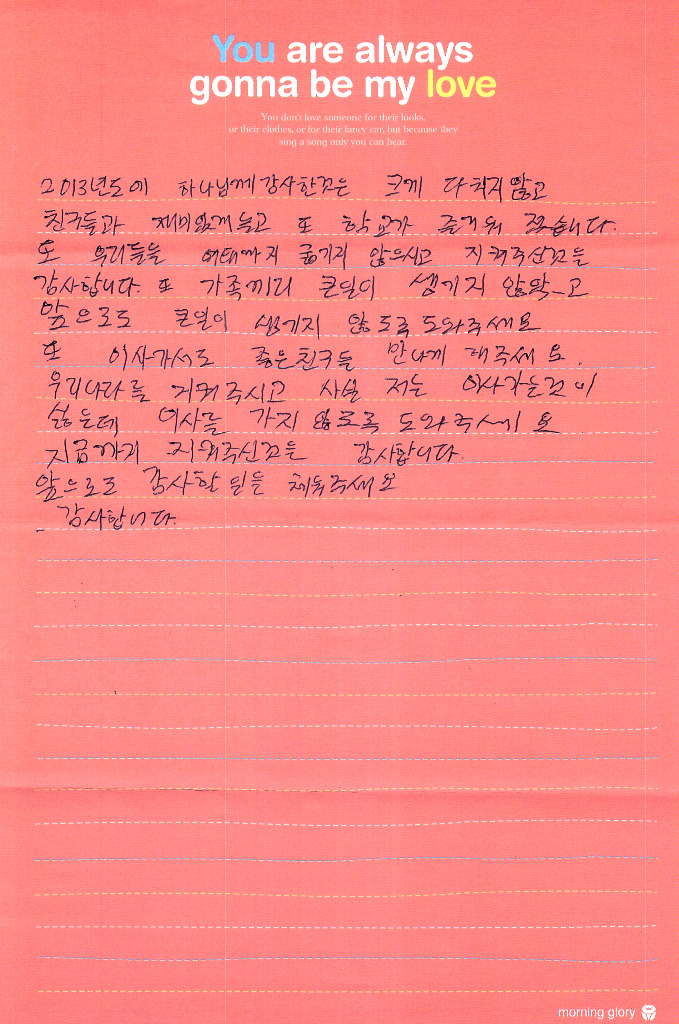 You are always
gonna be my love
You don't love someone for their looks,
or their clothes, or for their fancy car, but because they
sing a song only you can hear.
2013년도에 하나님께 감사한것은 크게 다치지 않고
친구들과 재미있게 놀고 또 학교가 즐거워 졌습니다.
또 우리들을 여태까지 굶기지 않으시고 지켜주신것을
감사합니다. 또 가족끼리 큰일이 생기지 않았고
앞으로도 큰일이 생기지 않도록 도와주세요
또 이사가서도 좋은친구들 만나게 해주세요.
우리나라를 지켜주시고 사실 저는 이사가는것이
싫은데 이사를 가지 않도록 도와주세요
지금까지 지켜주신것은 감사합니다.
앞으로도 감사할 일들 채워주세요
감사합니다.
morning glory